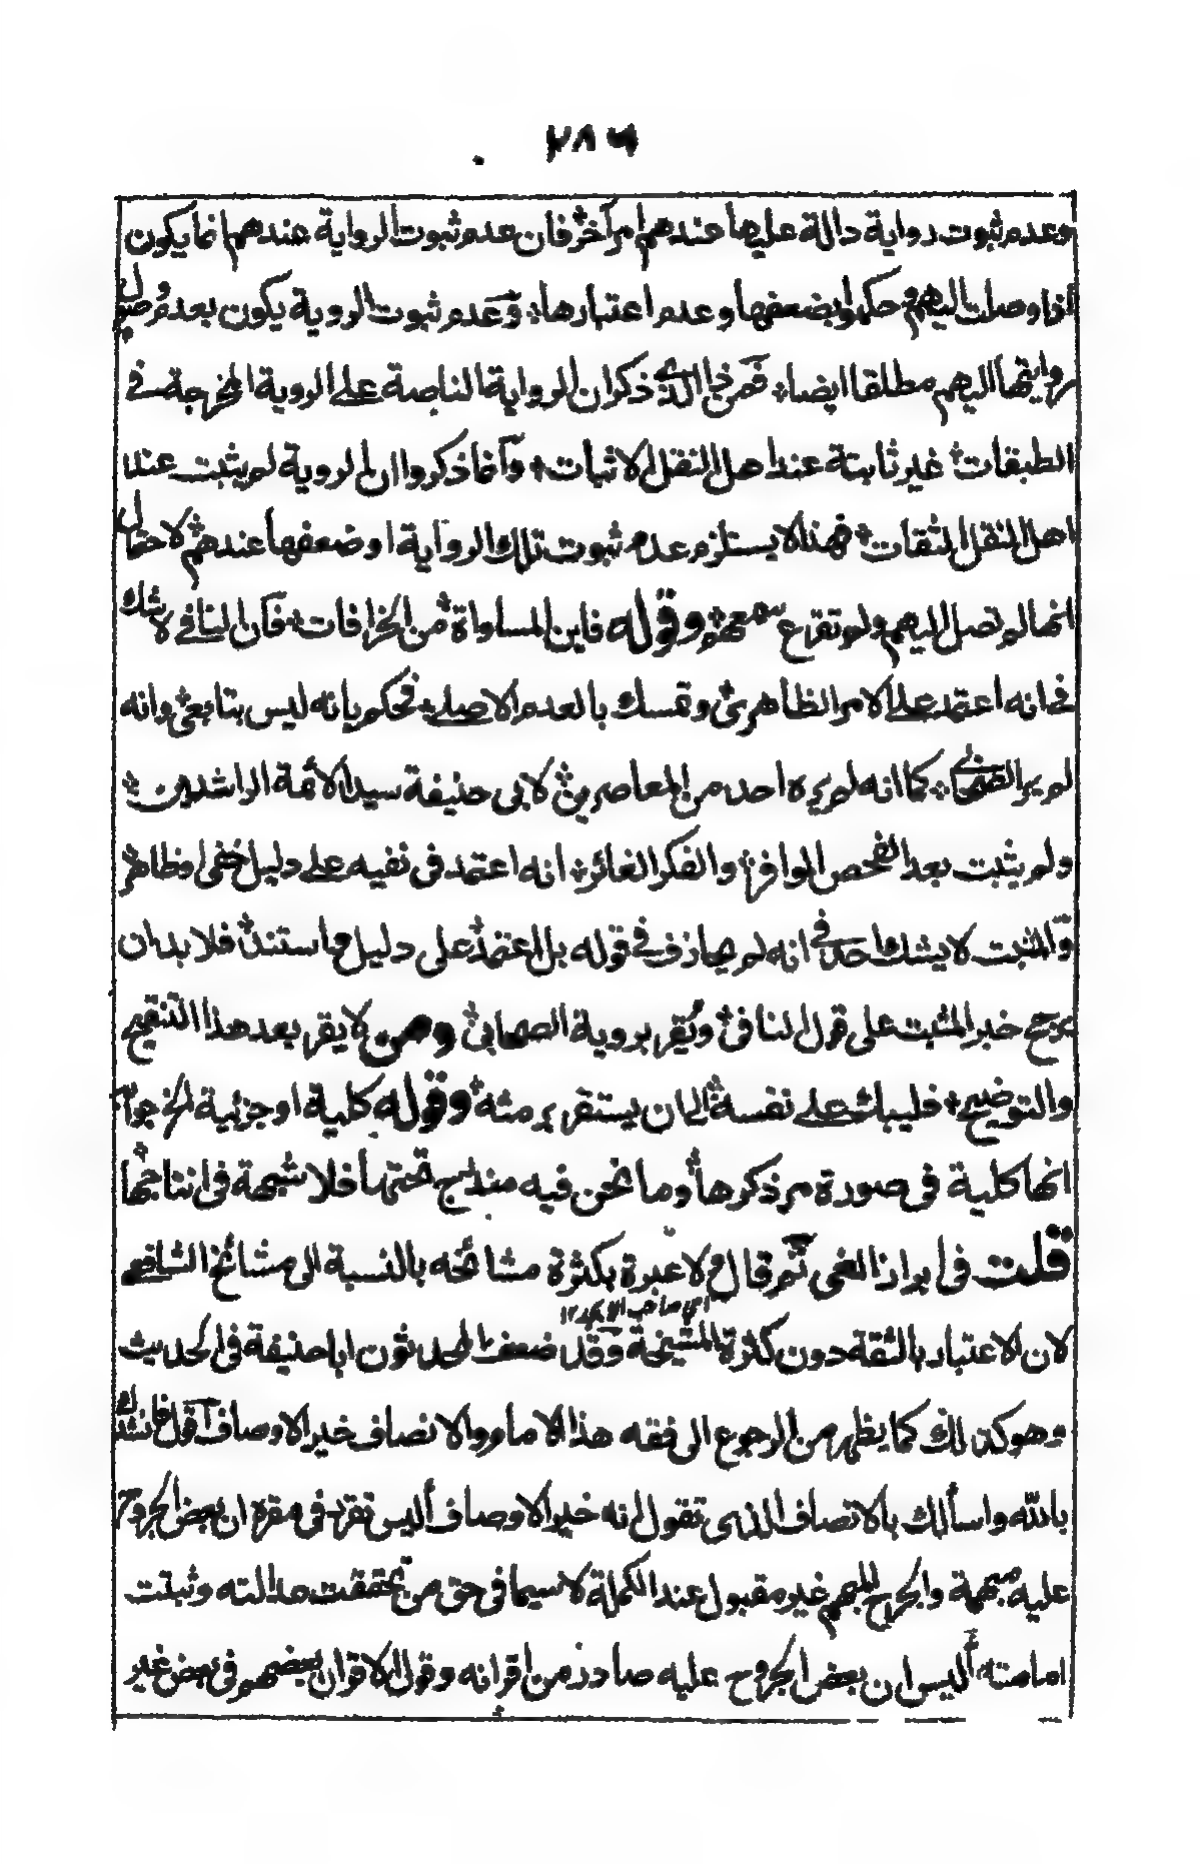 ٢٨٦
وعدم ثبوت رواية دالة عليها عندهم امر آخر فان عدم ثبوت الرواية عندهم انما يكون
اذا وصلت اليهم وحكموا بضعفها وعدم اعتبارها وعدم ثبوت الروية يكون بعدم وصول
روايتها اليهم مطلقا ايضا فمن ذا الذي ذكر ان الرواية الناصة على الروية المخرجة في
الطبقات غير ثابتة عند اهل النقل الاثبات وانما ذكروا ان الروية لم يثبت عند
اهل النقل الثقات فهذا لا يستلزم عدم ثبوت تلك الرواية او ضعفها عندهم لاحتمال
انها لم تصل اليهم ولم تقرع سمعهم وقوله فاين المساواة من الخرافات فان النافي لا شك
في انه اعتمد على الامر الظاهري وتمسك بالعدم الاصلي فحكم بانه ليس بتابعي وانه
لم ير الصحابي كما انه لم يره احد من المعاصرين لابي حنيفة سيد الائمة الراشدين
ولم يثبت بعد الفحص الوافر والفكر الغائر انه اعتمد في نفيه على دليل خفي او ظاهر
والمثبت لا يشك واحد في انه لم يجازف في قوله بل اعتمد على دليل واستند فلا بد ان
يرجح خبر المثبت على قول النافي ويقر بروية الصحابي ومن لا يقر بعد هذا التنقيح
والتوضيح فليبك على نفسه الى ان يستقر برمثه وقوله كلية او جزئية الخ جوابه
انها كلية في صورة مر ذكرها وما نحن فيه مندرج تحتها فلا شبهة في انتاجها
قلت في ابراز الغي ثم قال لا عبرة بكثرة مشائخه بالنسبة الى مشائخ الشافعي
اي صاحب الابجد ١٢
لان الاعتبار بالثقة دون كثرة المشيخة وقد ضعف المحدثون ابا حنيفة في الحديث
وهو كذلك كما يظهر من الرجوع الى فقه هذا الامام والانصاف خير الاوصاف اقول انشدك
بالله واسألك بالانصاف الذي تقول انه خير الاوصاف أليس تقرر في مقره ان بعض الجروح
عليه مبهمة والجرح المبهم غير مقبول عند الكملة لا سيما في حق من تحققت عدالته وثبتت
امامته أليس ان بعض الجروح عليه صادر من اقرانه وقول الاقران بعضهم في بعض غير